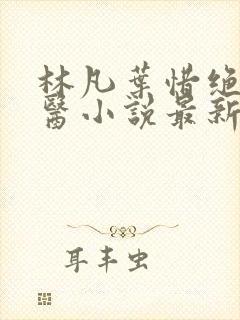 林凡葉惜绝
醫小説最新
耳丰虫